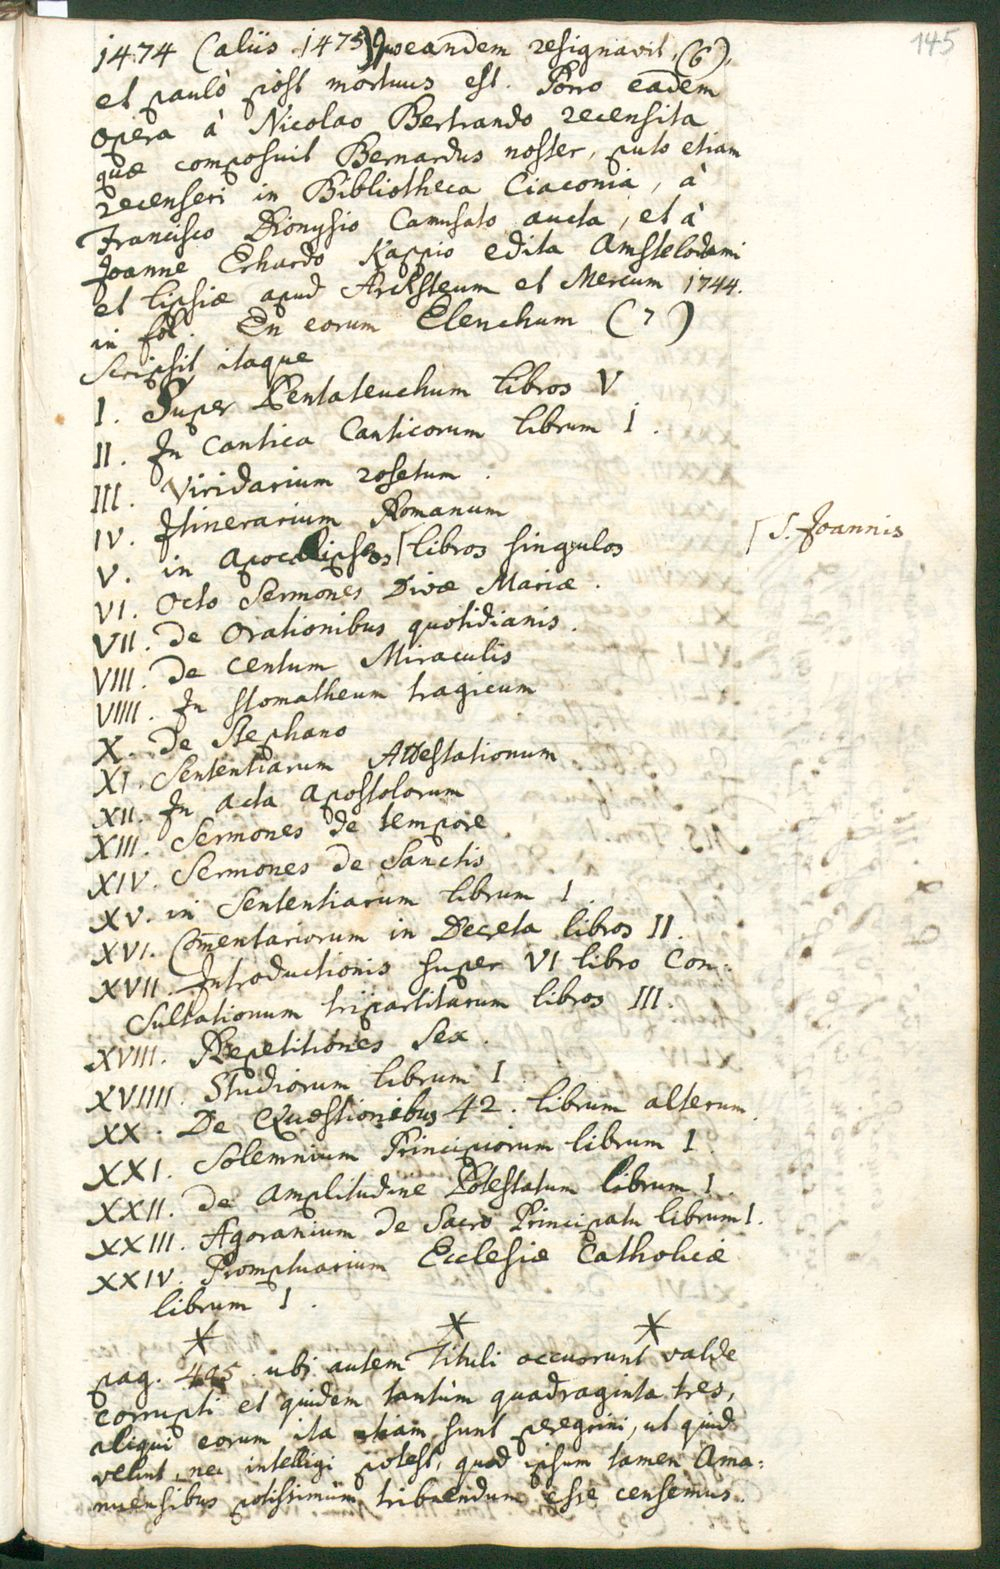 145
1474 (aliis 1475) eandem resignavit, (6),
et paulò post mortuus est. Porro eadem
opera à Nicolao Bertrando recensita
quæ composuit Bernardus noster, puto etiam
recenseri in Bibliotheca Ciaconia, à
Francisco Dionysio Camusato aucta, et à
Joanne Erhardo Kappio edita Amstelodami
et Lipsiæ apud Arcksteum et Mercum 1744.
in fol. En eorum Elenchum (7)
Scripsit itaque
I. Super Pentateuchum libros V
II. In Cantica Canticorum librum I.
III. Viridarium rosetum.
IV. Itinerarium Romanum
V. in Apocalipses [libros singulos
[S. Joannis
VI. Octo Sermones Divæ Mariæ.
VII. De Orationibus quotidianis.
VIII. De centum Miraculis
VIIII. In stomatheum tragicum
X. De Stephano
XI. Sententiarum Attestationum
XII. In acta Apostolorum
XIII. Sermones de tempore
XIV. Sermones de Sanctis
XV. in Sententiarum librum I.
XVI. Com̄entariorum in Decreta libros II.
XVII. Introductionis super VI libro Con=
sultationum tripartitarum libros III.
XVIII. Repetitiones Sex.
XVIIII. Studiorum librum I.
XX. De Quæstionibus 42. librum alterum.
XXI. Solemnium Principiorum librum I
XXII. De Amplitudine Potestatum librum I.
XXIII. Agoranium de Sacro Principatu librum I.
XXIV. Promptuarium Ecclesiæ Catholicæ
librum I.
* * *
pag. 445. ubi autem Tituli occurrunt valde
corrupti et quidem tantùm quadraginta tres,
aliqui eorum ita etiam sunt peregrini, ut quid
velint, nec intelligi potest, quod ipsum tamen Ama=
nuensibus potissimùm tribuendum esse censemus.